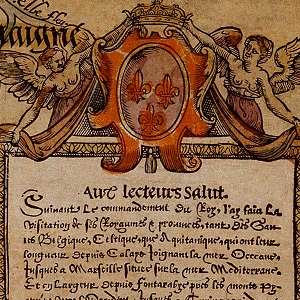 elle fleur
aigne
Aux lecteurs Salut.
Suiuant Le commandement du Roy, I'ay faict La
Visitation de ses Royaume & prouinces, tant Des Gau
les Belgique, Celtique, que Aquitanique, qui ont leur
longueur depuis Calays Ioignant la mer Occeane,
Iusques a Marseille situee sur la mer Mediterrane
Et en Largeur depuis fontarabye pres les monts Py